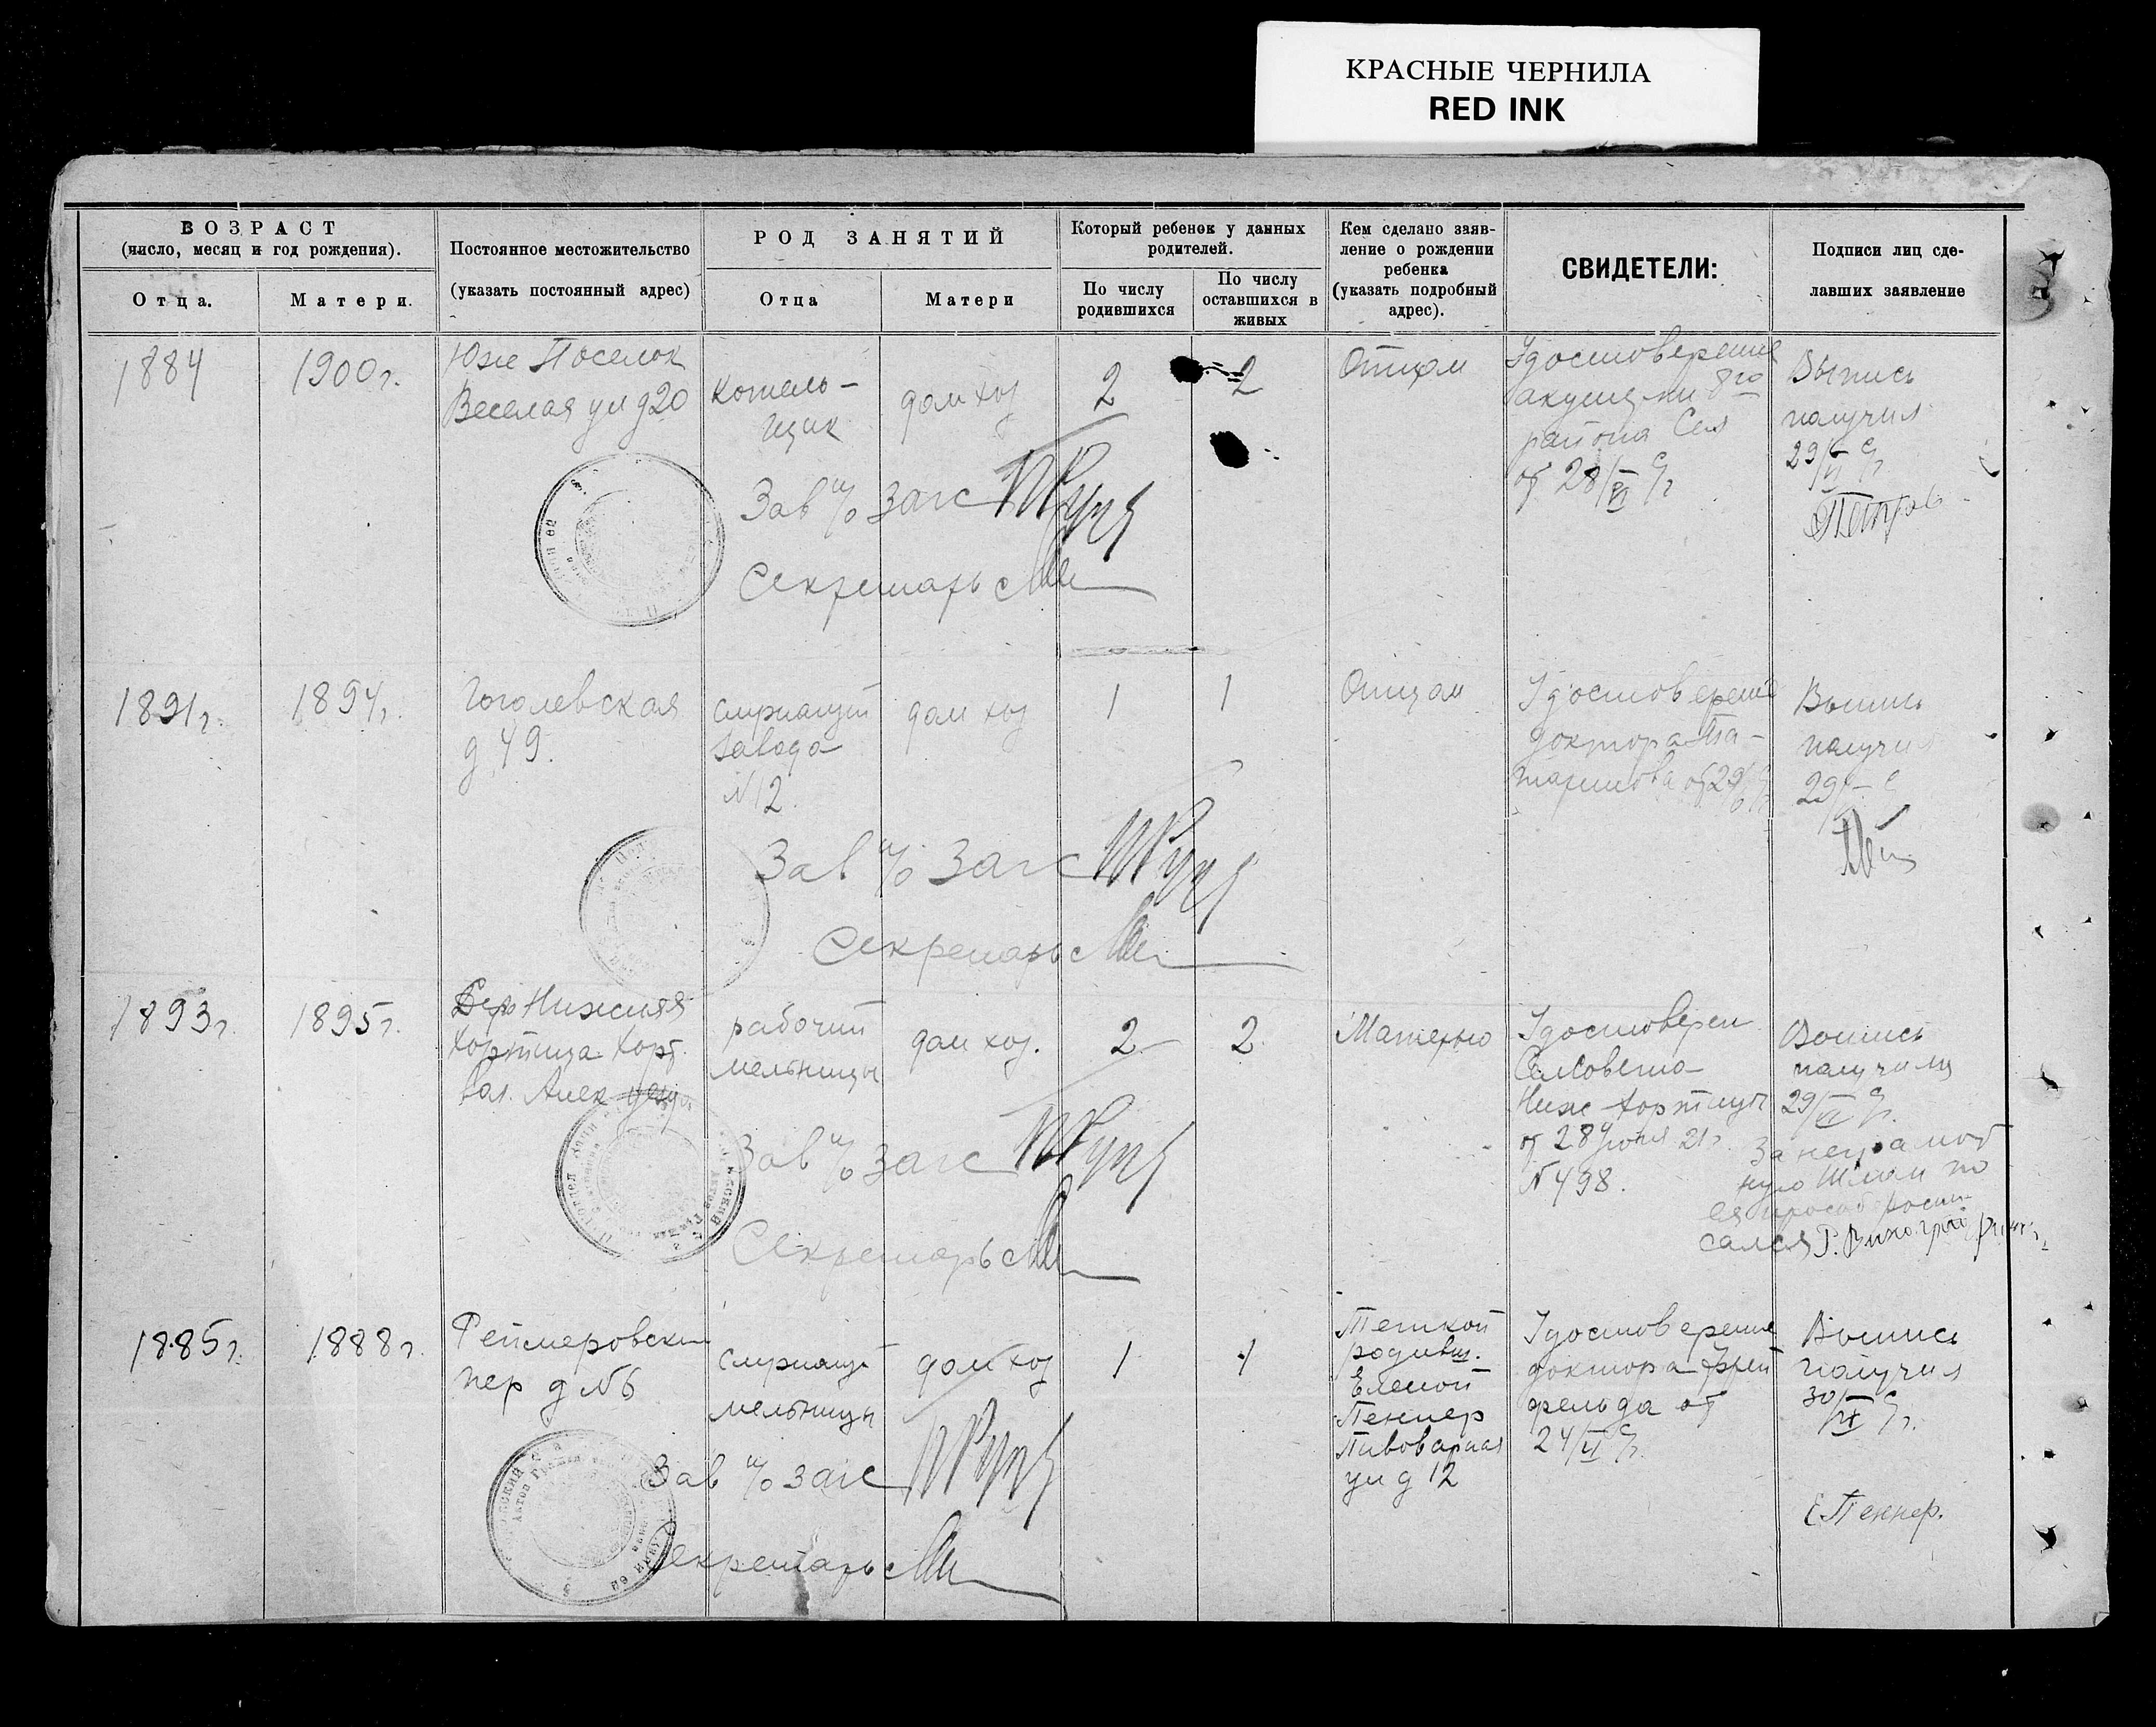 КРАСНЫЕ ЧЕРНИЛА
RED INK
ВОЗРАСТ
(число, месяц и год рождения).
Отца.
Матери.
Постоянное местожительство
(указать постоянный адрес)
РОД ЗАНЯТИЙ
Отца
Матери
Который ребенок у данных
родителей.
По числу
родившихся
По числу
оставшихся в
живых
Кем сделано заяв-
ление о рождении
ребенка
(указать подробный
адрес).
СВИДЕТЕЛИ:
Подписи лиц сде-
лавших заявление
1884
1900г.
Юж Поселок
Веселая ул д20
котель-
щик
дом хоз
2
2
Отцом
Удостоверение
акушерки 8го
района
от 28/VI
Выпись
получил
29/VI
Петров
Зав п/о Загс
Секретарь
1891г.
1894г.
Гоголевская
д 49.
служащий
завода
№12.
дом хоз
1
1
Отцом
Удостоверение
доктора
от 29
Выпись
получил
29
Зав п/о Загс
Секретарь
1893г.
1895г.
Дер Нижняя
Хортица Хорт.
вол. Алек уезд
рабочий
мельницы
дом хоз.
2
2
Матерью
Удостоверен
Сельсовета
Ниж Хортицы
от 28 Июня 21г
№498.
Выпись
получила
29/VI
За неграмот
ную по
ея просьб роспи
сался Р.
Зав п/о Загс
Секретарь
1885г.
1888г.
Реймеровский
пер д №6
служащ
мельницы
дом хоз
1
1
Теткой
родивш.
Еленой
Пеннер
Пивоварная
ул д 12
Удостоверение
доктора Фрей
фельда от
24/VI
Выпись
получил
30/VI
Е Пеннер.
Зав п/о Загс
Секретарь